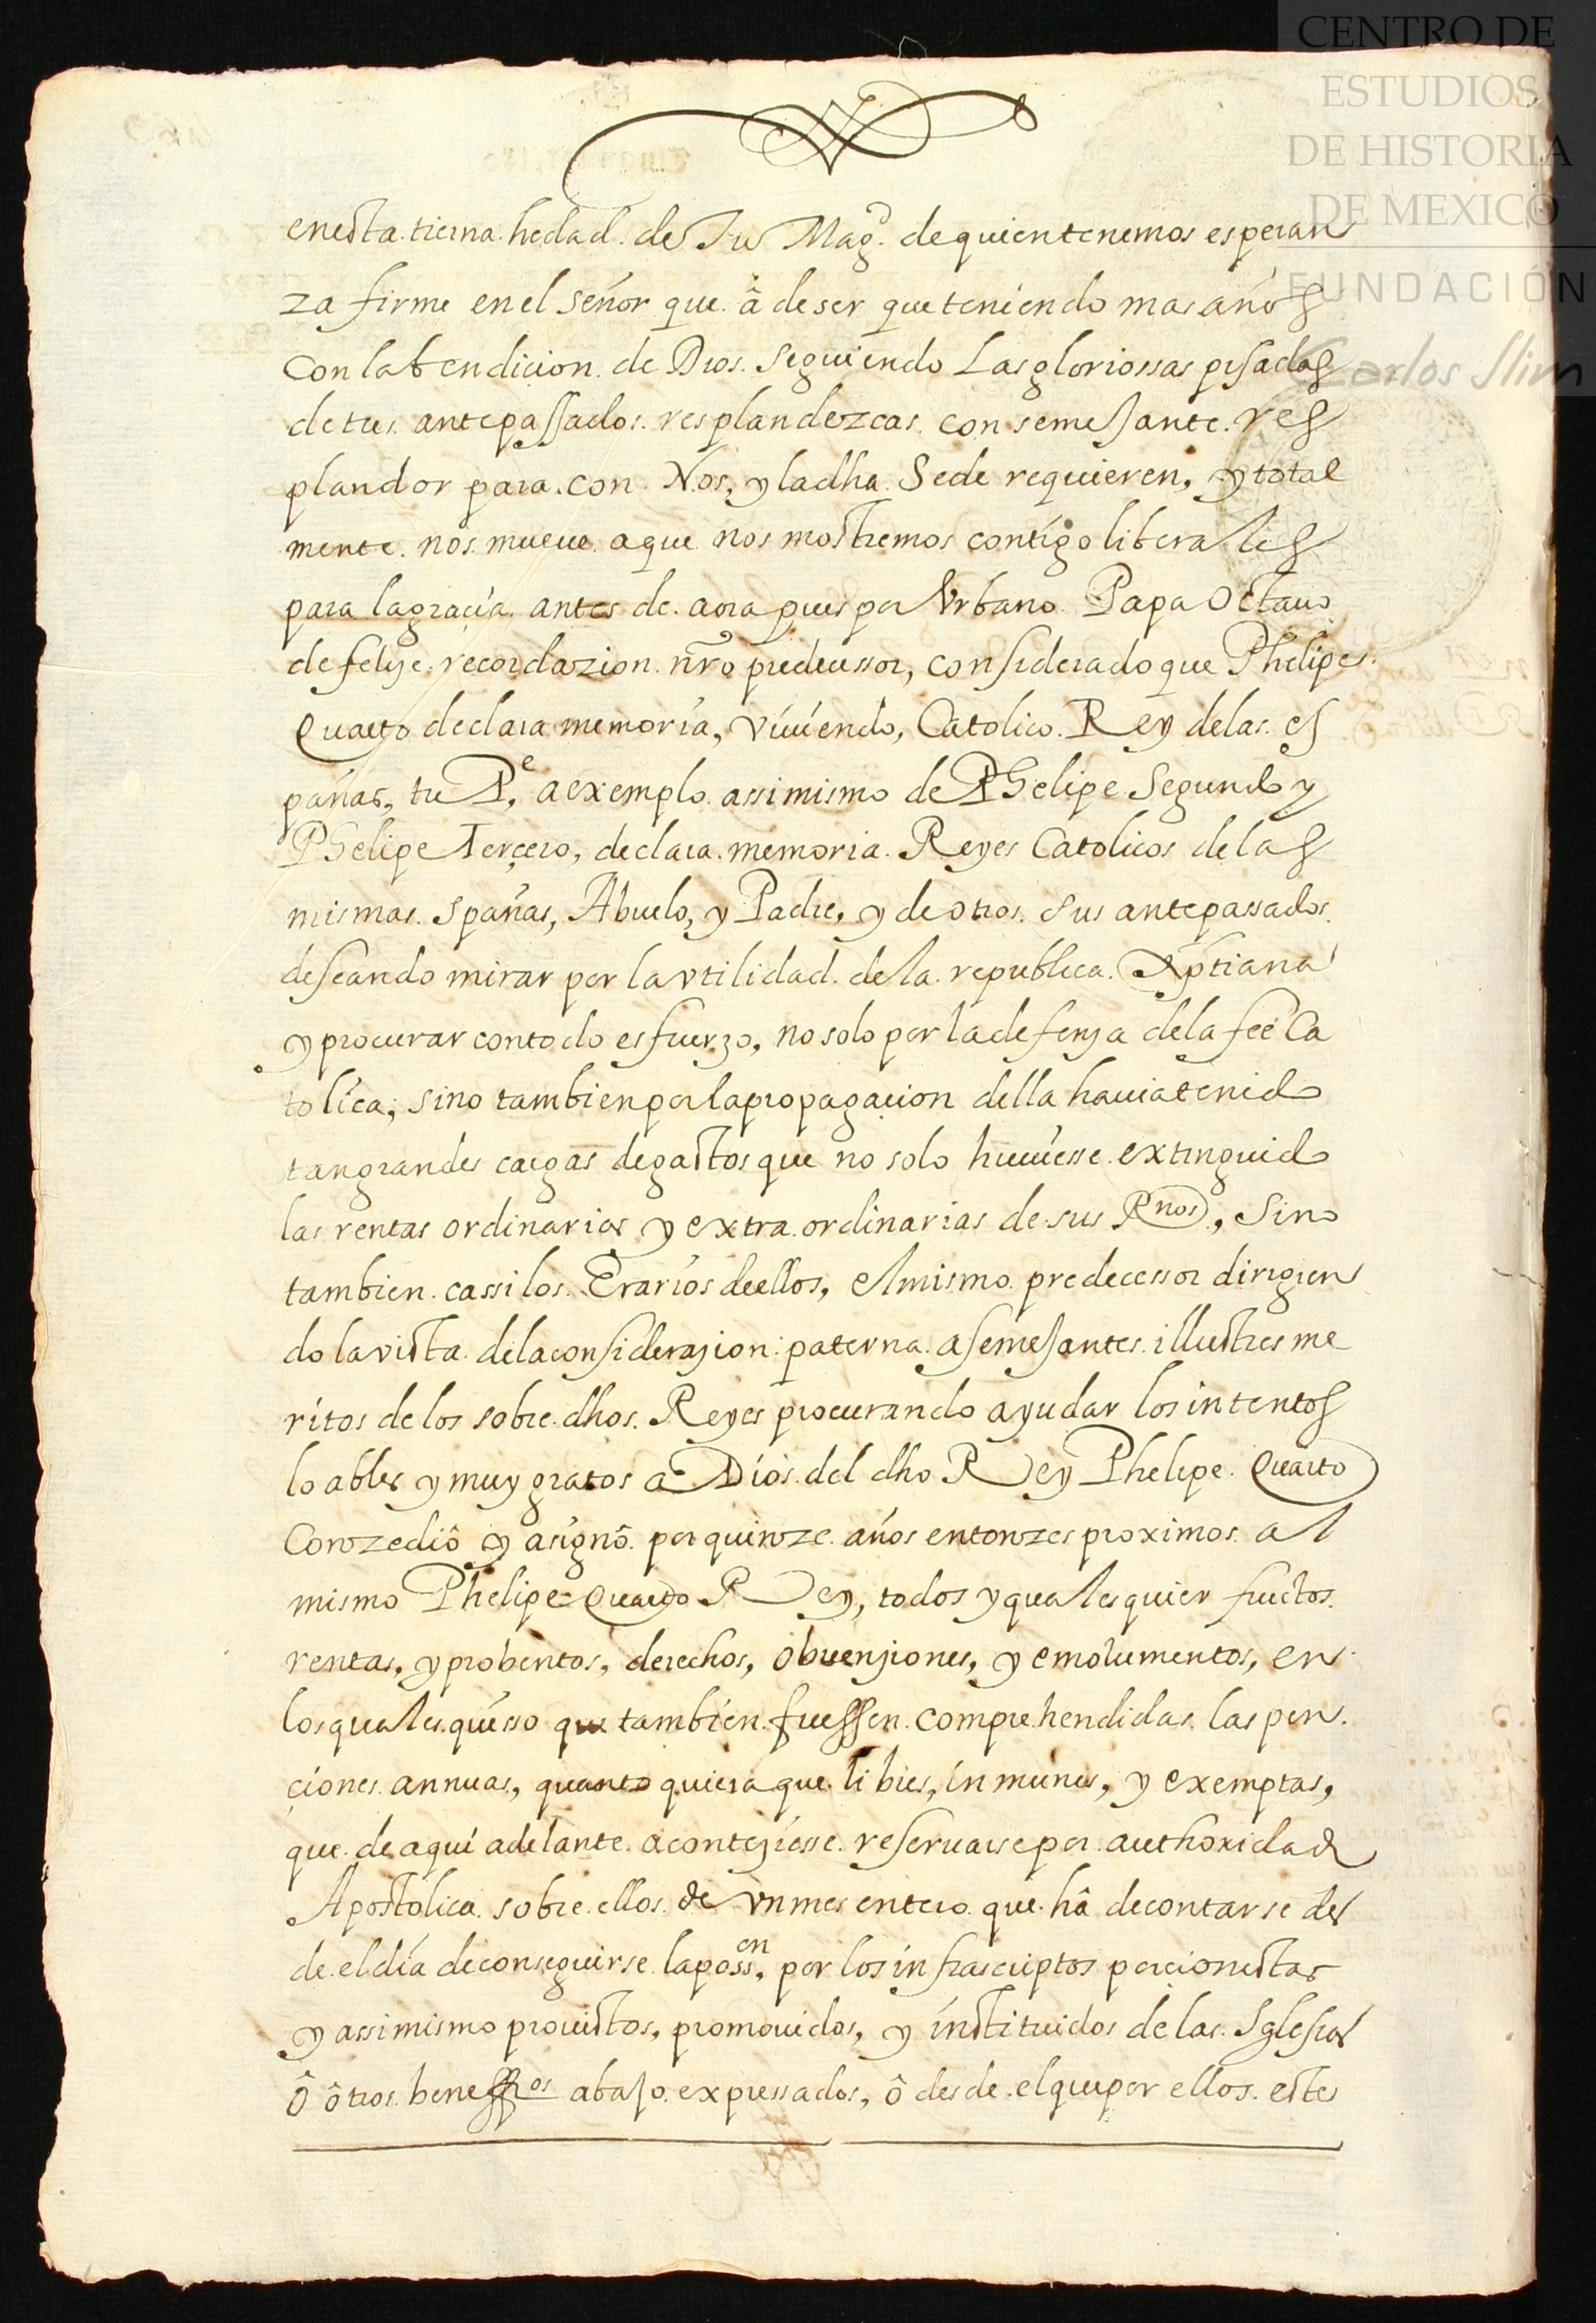 CENTRO DE
ESTUDIOS
DE HISTORIA
DE MEXICO
FUNDACIÓN
Carlos Slim
en esta tierna hedad de Su Magd. de quien tenemos esperan
za firme en el Señor que â de ser que teniendo mas años
con la bendicion de Dios siguiendo Las gloriossas pisadas
de tus antepassados resplandezcas con semejante res
plandor para con Nos, y la dha Sede requieren, y total
mente nos mueue a que nos mostremos contigo liberales
para la gracia antes de aora pues por Vrbano Papa Octauo
de felije recordazion nro predecessor, considerado que Phelipe
Quarto de clara memoria, viuiendo, Catolico Rey de las es
pañas, tu Pe, a exemplo assimismo de Phelipe Segundo y
Phelipe Terçero, de clara memoria Reyes Catolicos de las
mismas Spañas, Abuelo, y Padre, y de otros sus antepassados
deseando mirar por la vtilidad de la republica Xptiana
y procurar con todo esfuerzo, no solo por la defensa de la feê Ca
tolica, sino tambien por la propagaçion della hauia tenido
tan grandes cargas de gastos que no solo huuiesse extinguido
las rentas ordinarias y extra ordinarias de sus Rnos, Sino
tambien cassi los Erarios de ellos, el mismo predecessor dirigien
do la vista de la considerazion paterna a semejantes illustres me
ritos de los sobre dhos Reyes procurando ayudar los intentos
loables y muy gratos a Dios del dho Rey Phelipe Quarto
Conzediô y asignô por quinze años entonzes proximos al
mismo Phelipe Quarto Rey, todos y qualesquier fructos
rentas, y probentos, derechos, obuenziones, y emolumentos, en
los quales quisso que tambien fuessen comprehendidas las pen
çiones annuas, quanto quiera que libres, inmunes, y exemptas,
que de aqui adelante aconteziesse reseruarse por authoridad
Apostolica sobre ellos de vn mes entero que hâ de contarse des
de el dia de conseguirse la possen, por los infrascriptos pencionistas
y assimismo prouistos, promouidos, y instituidos de las Iglesias
ô ôtros beneffos abajo expressados, ô desde el que por ellos este